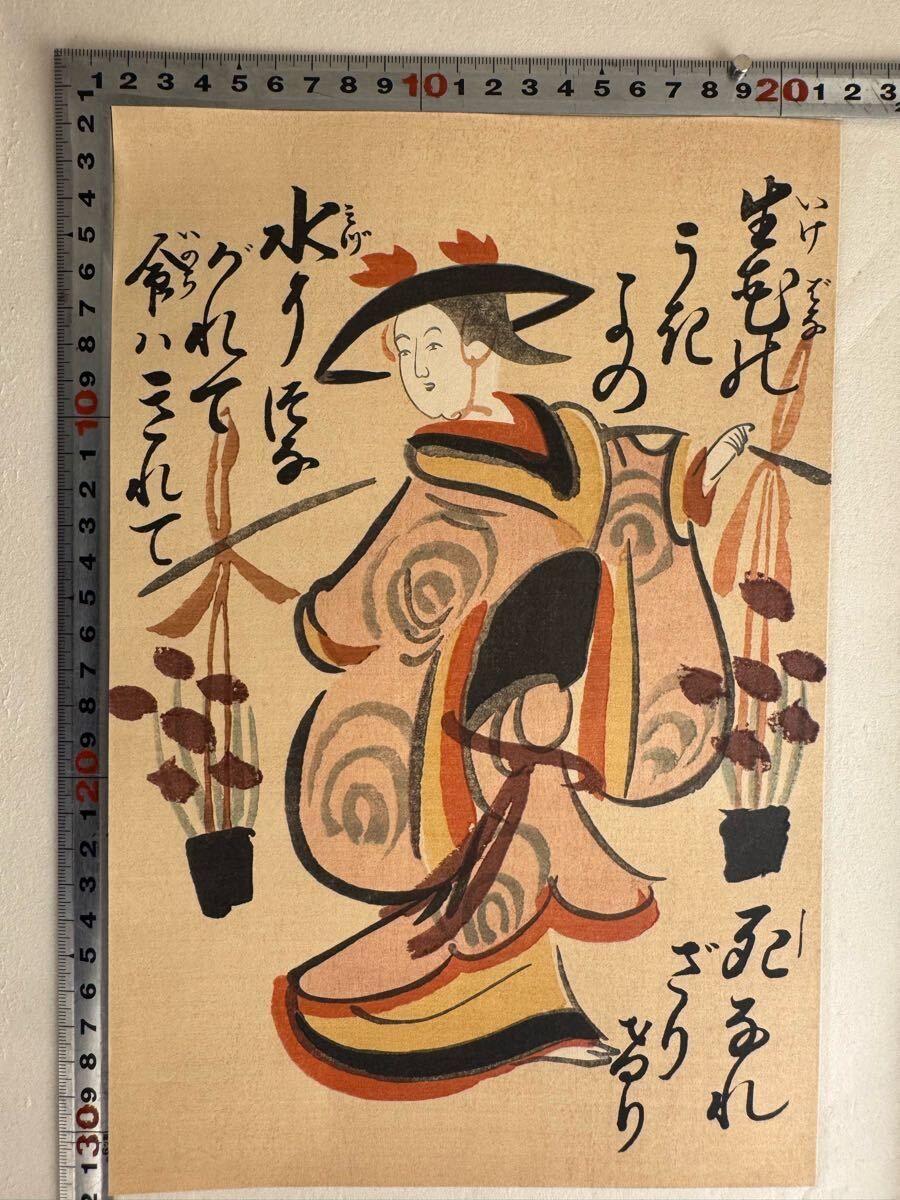 1 2 3 4 5 6 7 8 9 10 1 2 3 4 5 6 7 8 9 20 1 2 3
1 2 3 4 5 6 7 8 9 10 1 2 3 4 5 6 7 8 9 20 1 2 3 4 5 6 7 8 9 30 1 2
いけばな
生花の
うき
よの
みづ
水につな
がれて
いのち
命ハきれて
し
死なれ
ざり
けり